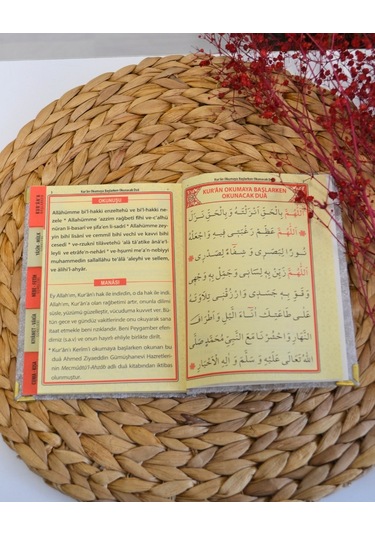 Kur'ân Okumaya Başlarken Okunacak Duâ
OKUNUŞU
Allâhümme bi'l-hakkı enzeltehû ve bi'l-hakkı ne-
zele * Allahümme 'azzim rağbetî fîhi ve-c'alhu
nûran li-basarî ve şifâ'en li-sadrî * Allahümme zey-
yin bihî lisânî ve cemmil bihî vechî ve kavvi bihî
cesedî * ve-rzuknî tilâvetehû 'alâ tâ'atike ânâe'l-
leyli ve etrâfe'n-nehâri * ve-hşurnî ma'a'n-nebiyyi
muhammedin sallallâhu te'âlâ 'aleyhi ve sellem,
ve âlihi'l-ahyâr.
MANÂSI
Ey Allah'ım, Kur'ân'ı hak ile indirdin, o da hak ile indi.
Allah'ım, Kur'ân'a olan rağbetimi artır, onunla dilimi
süsle, yüzümü güzelleştir, vücuduma kuvvet ver. Bü-
tün gece ve gündüz saatlerinde onu okuyarak sana
itaat etmekle beni rızıklandır. Beni Peygamber efen-
dimiz (s.a.v) ve onun hayırlı ehliyle haşreyle.
* Kur'ân Kerîm'i okumaya başlarken okunan bu
duâ Ahmed Ziyaeddin Gümüşhanevi Hazretleri-
nin Mecmûâtü'l-Ahzâb adlı duâ kitabından iktibas
olunmuştur.
Kur'ân Okumaya Başlarken Okunacak Duâ
KUR'ÂN OKUMAYA BAŞLARKEN
OKUNACAK DUÂ
اَللّٰهُمَّ بِالْحَقِّ اَنْزَلْتَهُ وَ بِالْحَقِّ نَزَلَ
اَللّٰهُمَّ عَظِّمْ رَغْبَتِى فِيهِ وَ اجْعَلْهُ
نُورًا لِبَصَرِى وَ شِفَاءً لِصَدْرِى
اَللّٰهُمَّ زَيِّنْ بِهِ لِسَانِى وَ جَمِّلْ بِهِ وَجْهِى
وَ قَوِّ بِهِ جَسَدِى وَ ارْزُقْنِى تِلَاوَتَهُ
عَلَى طَاعَتِكَ اٰنَاءَ الَّيْلِ وَ اَطْرَافَ
النَّهَارِ وَ احْشُرْنِى مَعَ النَّبِىِّ مُحَمَّدٍ صَلَّى
اللّٰهُ تَعَالٰى عَلَيْهِ وَ سَلَّمَ وَ اٰلِهِ الْاَخْيَارِ